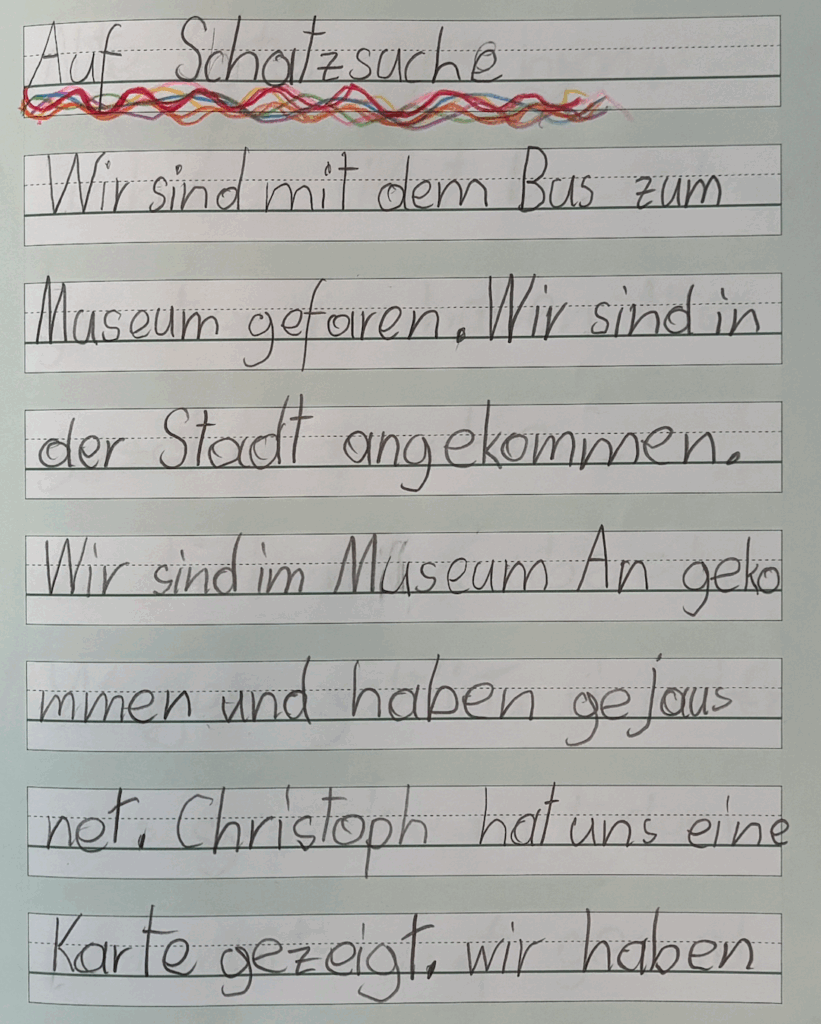 Auf Schatzsuche
Wir sind mit dem Bus zum
Museum gefaren. Wir sind in
der Stadt angekommen.
Wir sind im Museum An geko
mmen und haben gejaus
net. Christoph hat uns eine
Karte gezeigt. wir haben